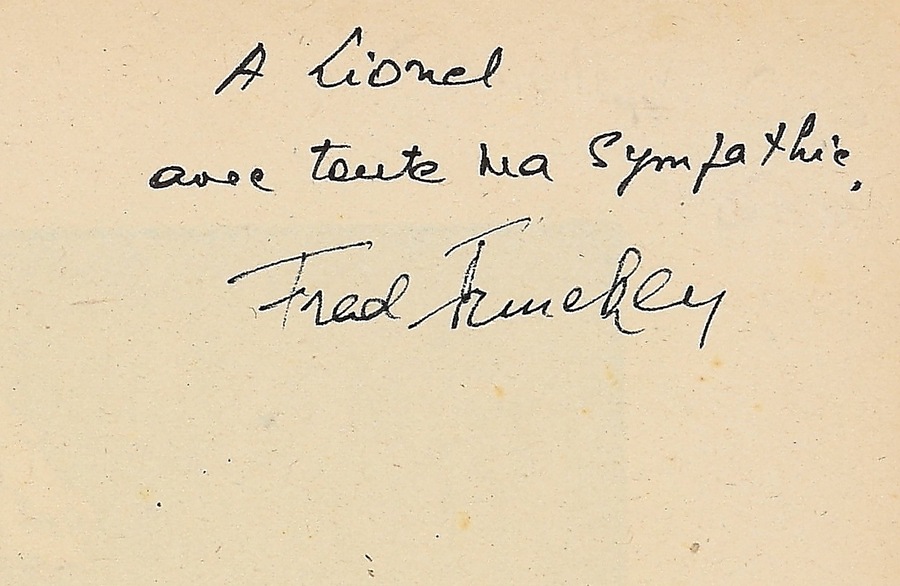 A Lionel
avec toute ma sympathie,
Fred Funckly